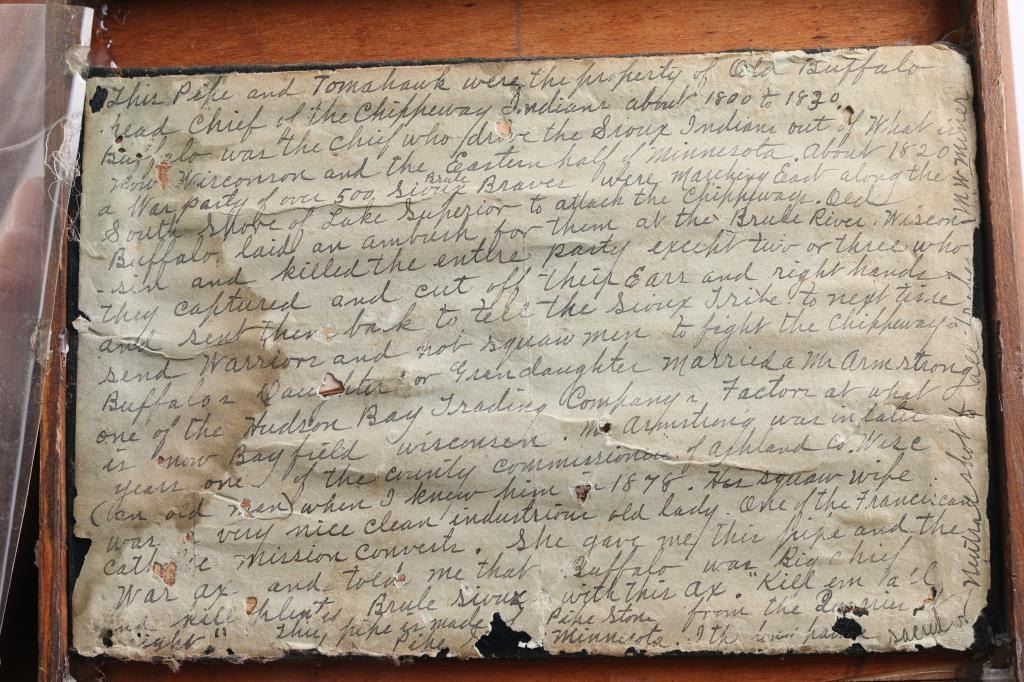 This Pipe and Tomahawk were the property of Old Buffalo
head Chief of the Chippeway Indians about 1800 to 1830.
Buffalo was the Chief who drove the Sioux Indians out of What is
now Wisconson and the Eastern half of Minnesota. About 1820
a War party of over 500 Sioux Brule Braves were marching East along the
South Shore of Lake Superior to attack the Chippeways. Old
Buffalo laid an ambush for them at the Brule River. Wiscon
-sin and killed the entire party except two or three who
they captured and cut off their Ears and right hands
and sent them back to tell the Sioux Tribe to next time
send Warriors and not squaw men to fight the Chippeways
Buffalos Daughter or Grandaughter married a Mr Armstrong
one of the Hudson Bay Trading Companys Factors at what
is now Bayfield wisconsen. Mr Armstrong was in later
years one of the county commissioners of Ashland Co. Wisc
(an old man) when I knew him in 1878. His squaw wife
was a very nice clean industrious old lady. One of the Francican
catholic mission converts. She gave me this pipe and the
War ax and told me that Buffalo was Big Chief
and kill plenty Brule Sioux with this Ax. "Kill em all
right" This pipe is made Pipe Stone from the Quarries of
Pipe Minnesota.
sacred or neutral
M W Miner